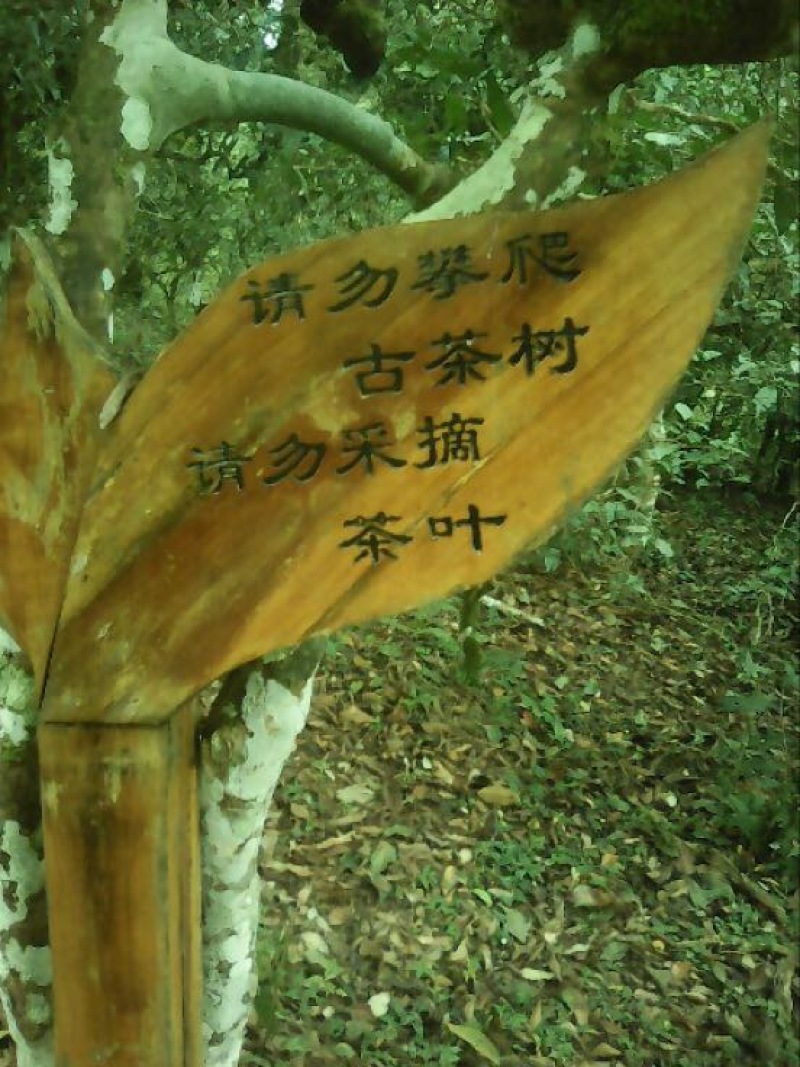 请勿攀爬
古茶树
请勿采摘
茶叶